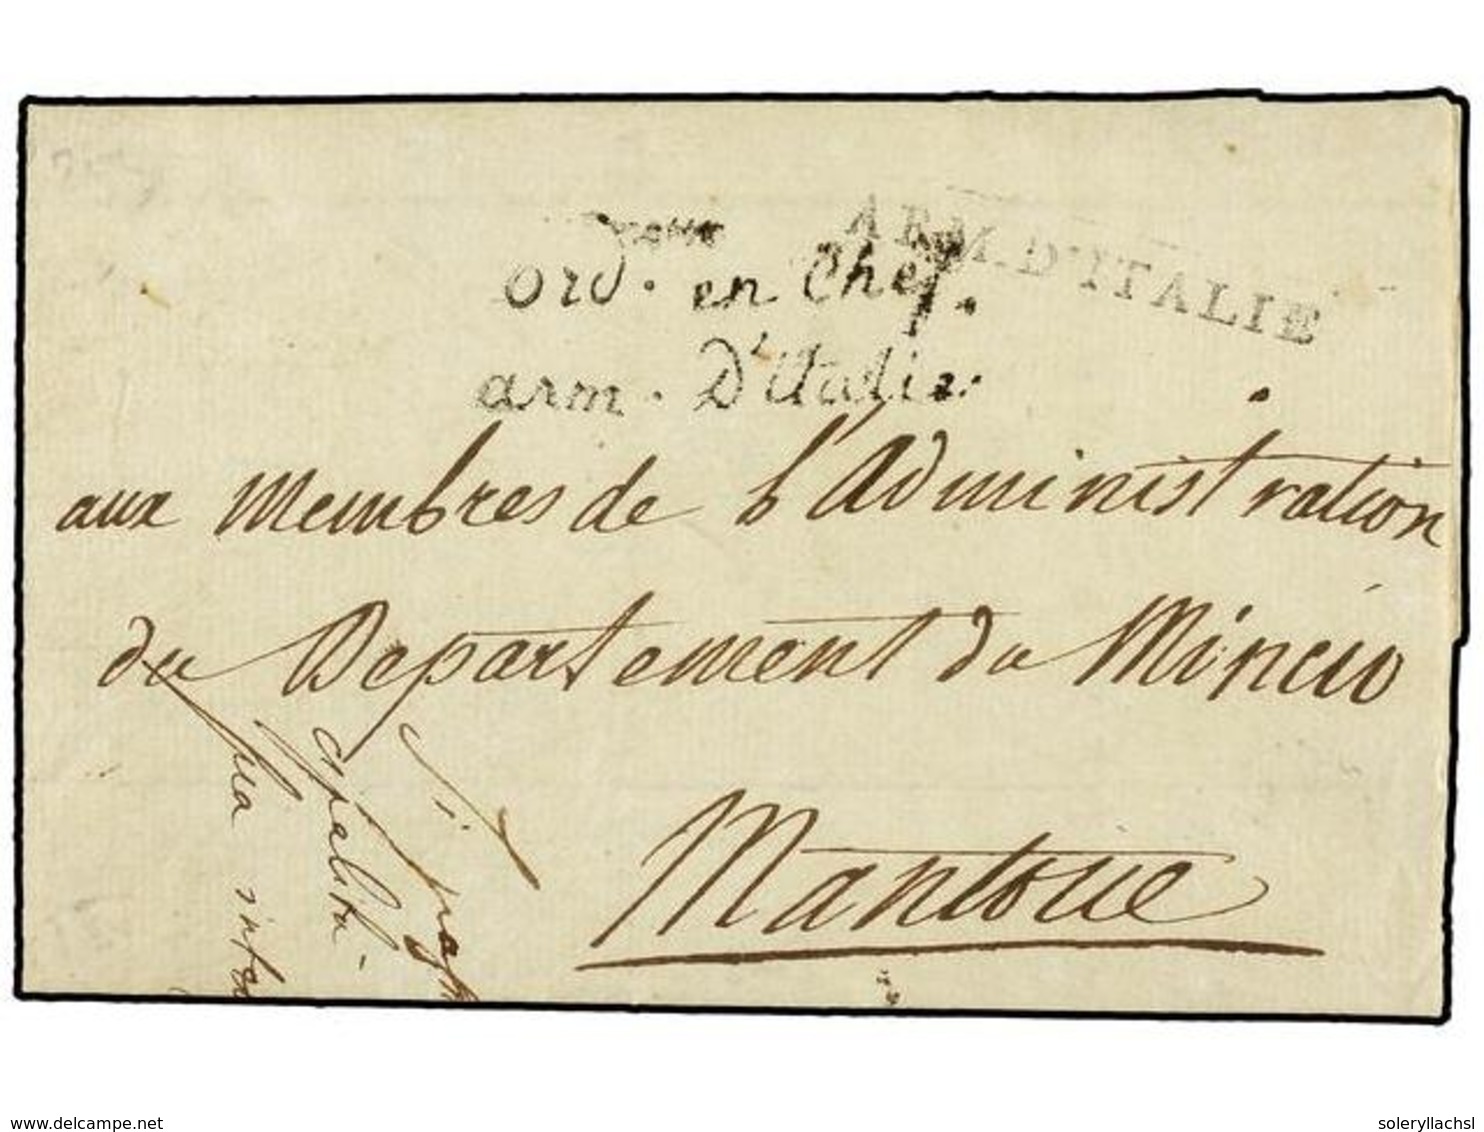 ARM. D'ITALIE
Ord. en Chef.
arm. D'Italie.
aux Membres de l'Administration
du Departement du Mincio
Mantoue
www.delcampe.net
soleryllachsl